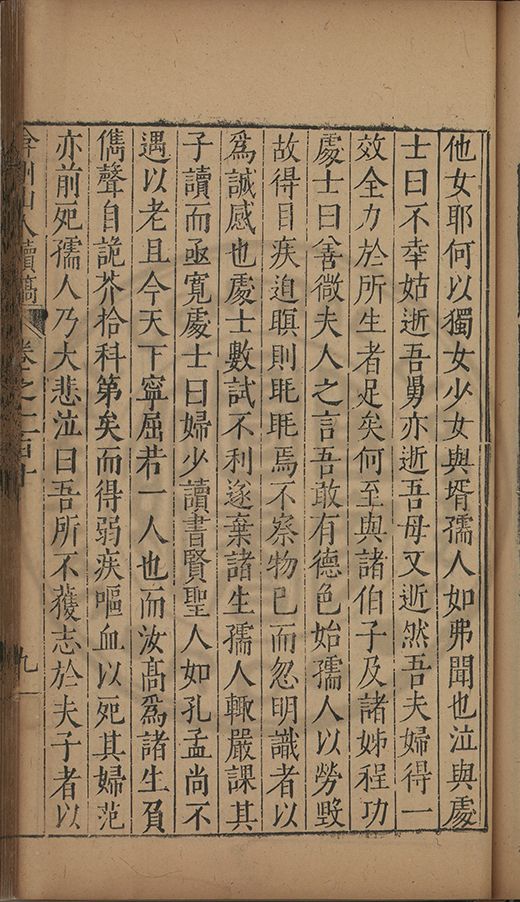 他女耶何以獨女少女與壻孺人如弗聞也泣與處
士曰不幸姑逝吾舅亦逝吾母又逝然吾夫婦得一
效全力於所生者足矣何至與諸伯子及諸姊程功
處士曰善微夫人之言吾敢有德色始孺人以勞毀
故得目疾迫瞑則眊眊焉不察物已而忽明識者以
爲誠感也處士數試不利遂棄諸生孺人輙嚴課其
子讀而亟寬處士曰婦少讀書賢聖人如孔孟尚不
遇以老且今天下寧屈若一人也而汝高爲諸生負
儁聲自詭芥拾科第矣而得弱疾嘔血以死其婦范
亦前死孺人乃大悲泣曰吾所不獲志於夫子者以
弇州山人續稿 卷之一百十 九